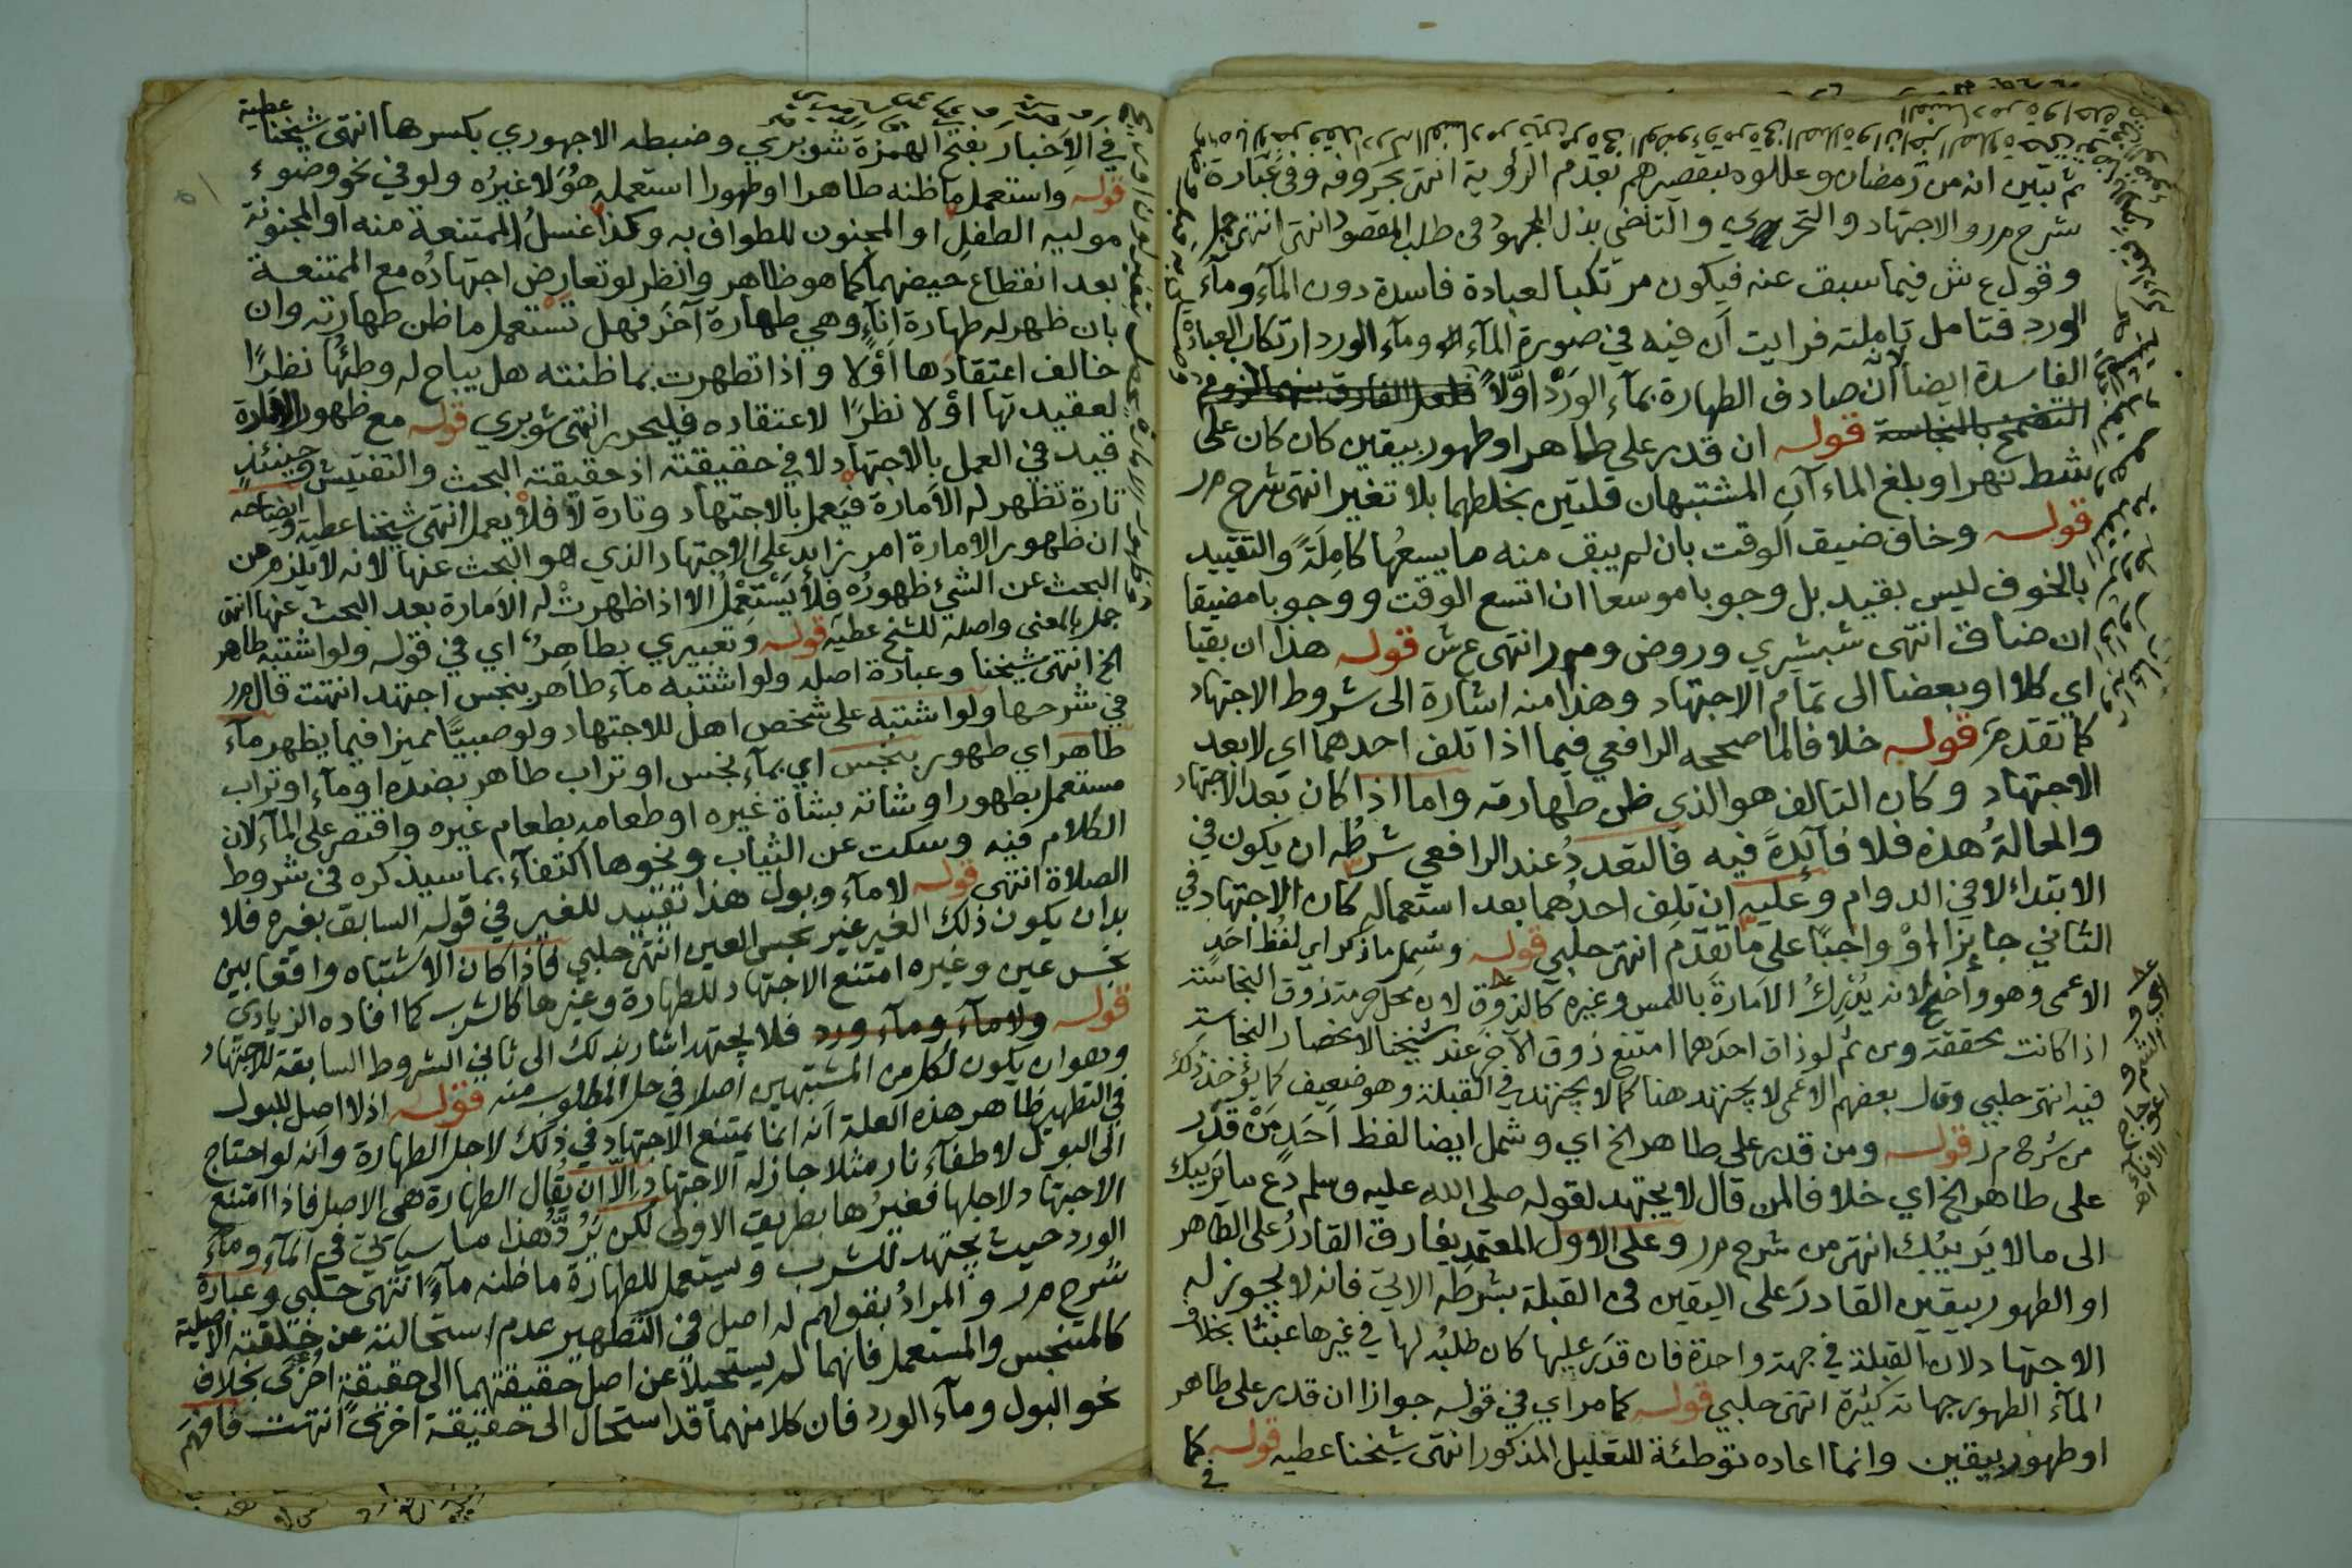 ثم تبين انه من رمضان وعللوه بتقصيرهم بتقدم الرؤية انتهى بحروفه وفي عبارة
شرح م ر والاجتهاد والتحري والتاخي بذل المجهود في طلب المقصود انتهى انتهى جمل
وقول ع ش فيما سبق عنه فيكون مرتكبا لعبادة فاسدة دون الماء وماء
الورد فتامل تاملته فرايت ان فيه في صورة الماء وماء الورد ارتكاب العبادة
الفاسدة ايضا لانه ان صادف الطهارة بماء الورد اولا
قوله ان قدر على طاهر او طهور بيقين كان كان على
شط نهر او بلغ الماءآن المشتبهان قلتين بخلطهما بلا تغير انتهى شرح م ر
قوله وخاف ضيق الوقت بان لم يبق منه ما يسعها كاملة والتقييد
بالخوف ليس بقيد بل وجوبا موسعا ان اتسع الوقت ووجوبا مضيقا
ان ضاق انتهى شبشيري وروض وم ر انتهى ع ش قوله هذا ان بقيا
اي كلا او بعضا الى تمام الاجتهاد وهذا منه اشارة الى شروط الاجتهاد
كما تقدم قوله خلافا لما صححه الرافعي فيما اذا تلف احدهما اي لا بعد
الاجتهاد وكان التالف هو الذي ظن طهارته واما اذا كان بعد الاجتهاد
والحالة هذه فلا فآئدة فيه فالتعدد عند الرافعي شرطه ان يكون في
الابتداء لا في الدوام وعليه ان تلف احدهما بعد استعماله كان الاجتهاد في
الثاني جايزا او واجبا على ما تقدم انتهى حلبي قوله وشمل ما ذكر اي لفظ احد
الاعمى وهو واضح لانه يدرك الامارة باللمس وغيره كالذوق لان محل حرمة ذوق النجاسة
اذا كانت محققة ومن ثم لو ذاق احدهما امتنع ذوق الآخر عند شيخنا لانحصار النجاسة
فيه انتهى حلبي وقال بعضهم الاعمى لا يجتهد هنا كما لا يجتهد في القبلة وهو ضعيف كما يؤخذ ذلك
من شرح م ر قوله ومن قدر على طاهر الخ اي وشمل ايضا لفظ احد من قدر
على طاهر الخ اي خلافا لمن قال لا يجتهد لقوله صلى الله عليه وسلم دع ما يريبك
الى ما لا يريبك انتهى من شرح م ر وعلى الاول المعتمد يفارق القادر على الطاهر
او الطهور بيقين القادر على اليقين في القبلة بشرطه الاتي فانه لا يجوز له
الاجتهاد لان القبلة في جهة واحدة فان قدر عليها كان طلبه لها في غيرها عبثا بخلاف
المآء الطهور جهاته كثيرة انتهى حلبي قوله كما مر اي في قوله جوازا ان قدر على طاهر
او طهور بيقين وانما اعاده توطئة للتعليل المذكور انتهى شيخنا عطيه قوله كما
في
في الاخبار بفتح الهمزة شوبري وضبطه الاجهوري بكسرها انتهى شيخنا عطية
قوله واستعمل ما ظنه طاهرا او طهورا استعمله هو لا غيره ولو في نحو وضوء
موليه الطفل او المجنون للطواف به وكذا غسل الممتنعة منه او المجنونة
بعد انقطاع حيضهما كما هو ظاهر وانظر لو تعارض اجتهاده مع الممتنعة
بان ظهر له طهارة انآء وهي طهارة آخر فهل تستعمل ما ظن طهارته وان
خالف اعتقادها اولا واذا تطهرت بما ظنته هل يباح له وطئها نظرا
لعقيدتها اولا نظرا لاعتقاده فليحرر انتهى شوبري قوله مع ظهور الامارة
قيد في العمل بالاجتهاد لا في حقيقته اذ حقيقته البحث والتفتيش وحينئذ
تارة تظهر له الامارة فيعمل بالاجتهاد وتارة لا فلا يعمل انتهى شيخنا عطية وايضاحه
ان ظهور الامارة امر زايد على الاجتهاد الذي هو البحث عنها لانه لا يلزم من
البحث عن الشيء ظهوره فلا يستعمل الا اذا ظهرت له الامارة بعد البحث عنها انتهى
جمل بالمعنى واصله للشيخ عطيه قوله وتعبيري بطاهر اي في قوله ولو اشتبه طاهر
الخ انتهى شيخنا وعبارة اصله ولو اشتبه مآء طاهر بنجس اجتهد انتهت قال م ر
في شرحها ولو اشتبه على شخص اهل للاجتهاد ولو صبيا مميزا فيما يظهر مآء
طاهر اي طهور بنجس اي بمآء نجس او تراب طاهر بضده او مآء او تراب
مستعمل بطهور او شاته بشاة غيره او طعامه بطعام غيره واقتصر على المآء لان
الكلام فيه وسكت عن الثياب ونحوها اكتفآء بما سيذكره في شروط
الصلاة انتهى قوله لا مآء وبول هذا تقييد للغير في قوله السابق بغيره فلا
بد ان يكون ذلك الغير غير نجس العين انتهى حلبي فاذا كان الاشتباه واقعا بين
نجس عين وغيره امتنع الاجتهاد للطهارة وغيرها كالشرب كما افاده الزيادي
قوله ولا مآء ومآء ورد فلا يجتهد اشار بذلك الى ثاني الشروط السابقة للاجتهاد
وهو ان يكون لكل من المشتبهين اصلا في حل المطلوب منه قوله اذ لا اصل للبول
في التطهير ظاهر هذه العلة انه انما يمتنع الاجتهاد في ذلك لاجل الطهارة وانه لو احتاج
الى البول لاطفآء نار مثلا جاز له الاجتهاد الا ان يقال الطهارة هي الاصل فاذا امتنع
الاجتهاد لاجلها فغيرها بطريق الاولى لكن يرد هذا ما سياتي في المآء ومآء
الورد حيث يجتهد للشرب ويستعمل للطهارة ما ظنه مآء انتهى حلبي وعبارة
شرح م ر والمراد بقولهم له اصل في التطهير عدم استحالته عن خلقته الاصلية
كالمتنجس والمستعمل فانهما لم يستحيلا عن اصل حقيقتهما الى حقيقة اخرى بخلاف
نحو البول ومآء الورد فان كلا منهما قد استحال الى حقيقة اخرى انتهت فافهم